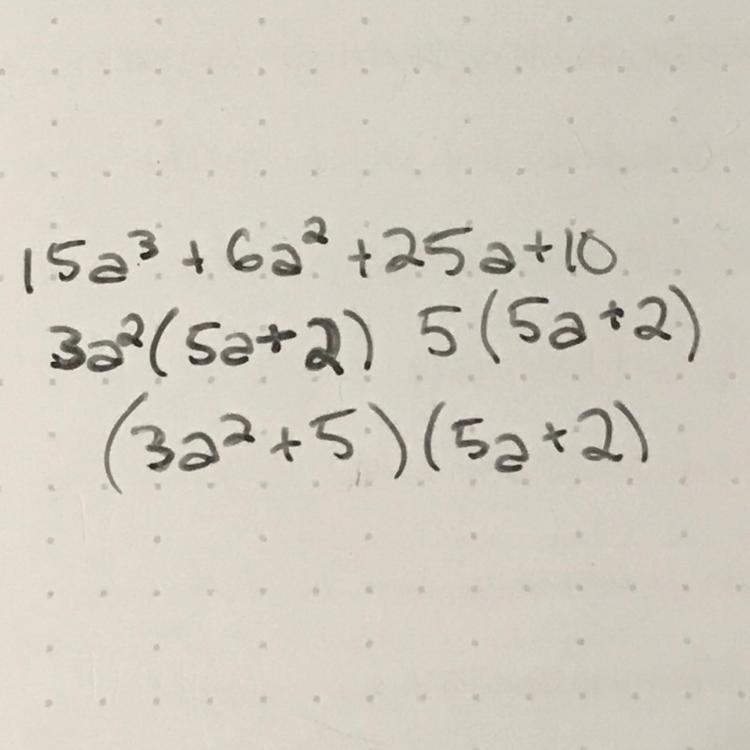 15a³ + 6a² + 25a + 10
3a²(5a + 2) 5(5a + 2)
(3a² + 5)(5a + 2)